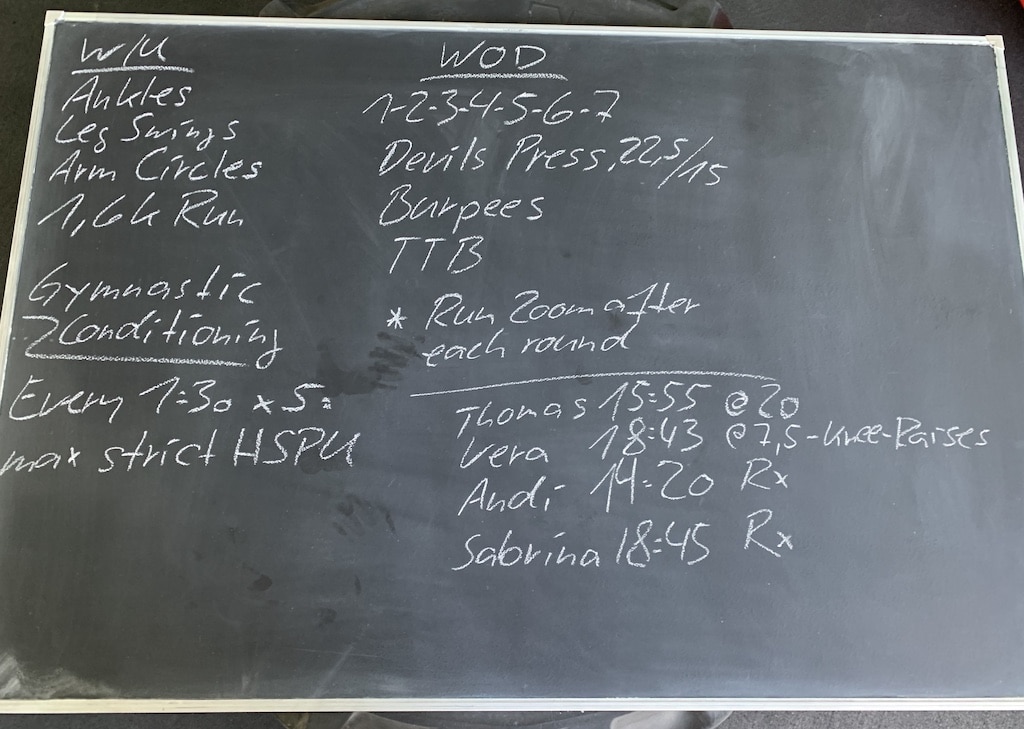 W/U
Ankles
Leg Swings
Arm Circles
1,6k Run
Gymnastic
Conditioning
Every 1:30 x 5:
max strict HSPU
WOD
1-2-3-4-5-6-7
Devils Press 22,5/15
Burpees
TTB
* Run 200m after
each round
Thomas 15:55 @20
Vera 18:43 @7,5-Knee-Raises
Andi 14:20 Rx
Sabrina 18:45 Rx